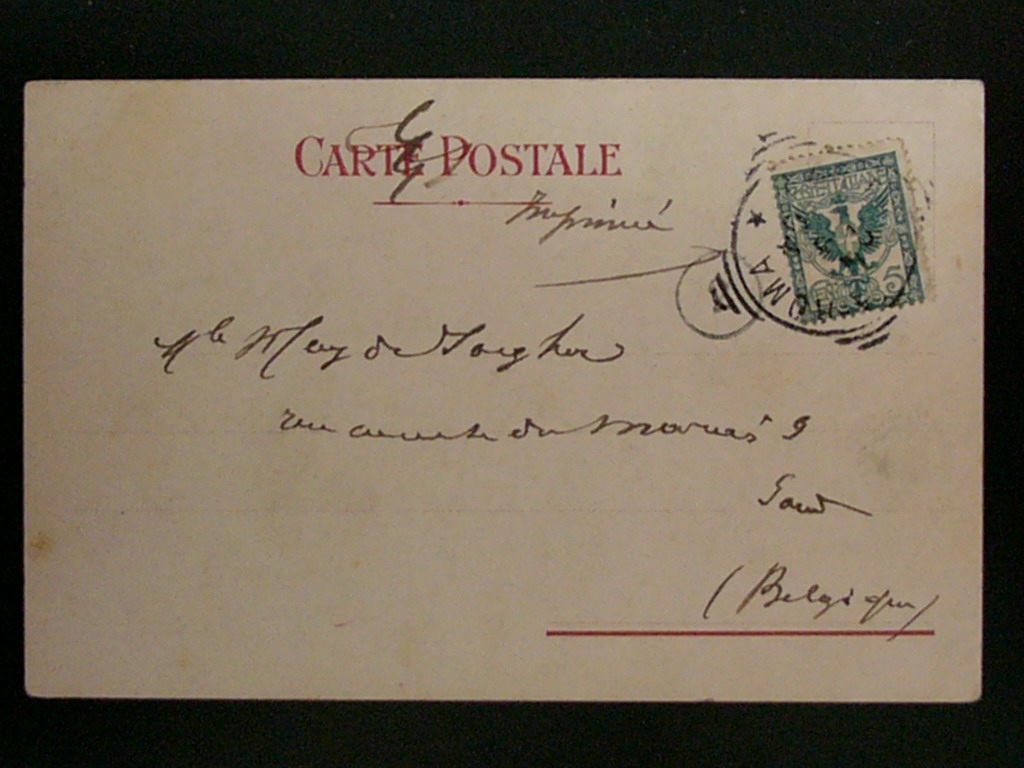 CARTE POSTALE
Imprimé
POSTE ITALIANE
5
ROMA
Mlle May de
rue du marais 9
Gand
(Belgique)